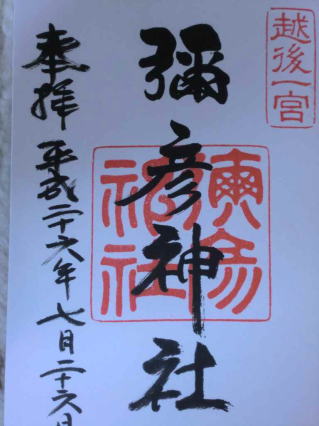 越後一宮
彌彦神社
奉拝 平成二十六年七月二十六日